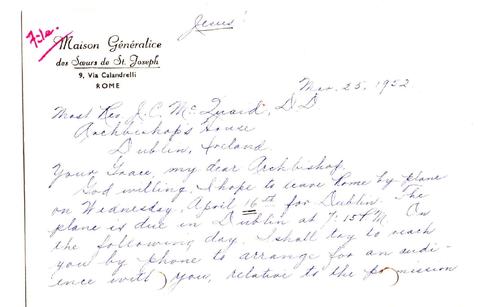 Jesus!
File
Maison Généralice
des Sœurs de St. Joseph
9, Via Calandrelli
ROME
Mar. 25, 1952
Most Rev. J. C. McQuaid, D D
Archbishop's House
Dublin, Ireland.
Your Grace, my dear Archbishop,
God willing, I hope to leave Rome by plane
on Wednesday, April 16th for Dublin. The
plane is due in Dublin at 7:15 P.M. On
the following day, I shall try to reach
you by phone to arrange for an audi-
ence with you, relative to the permission